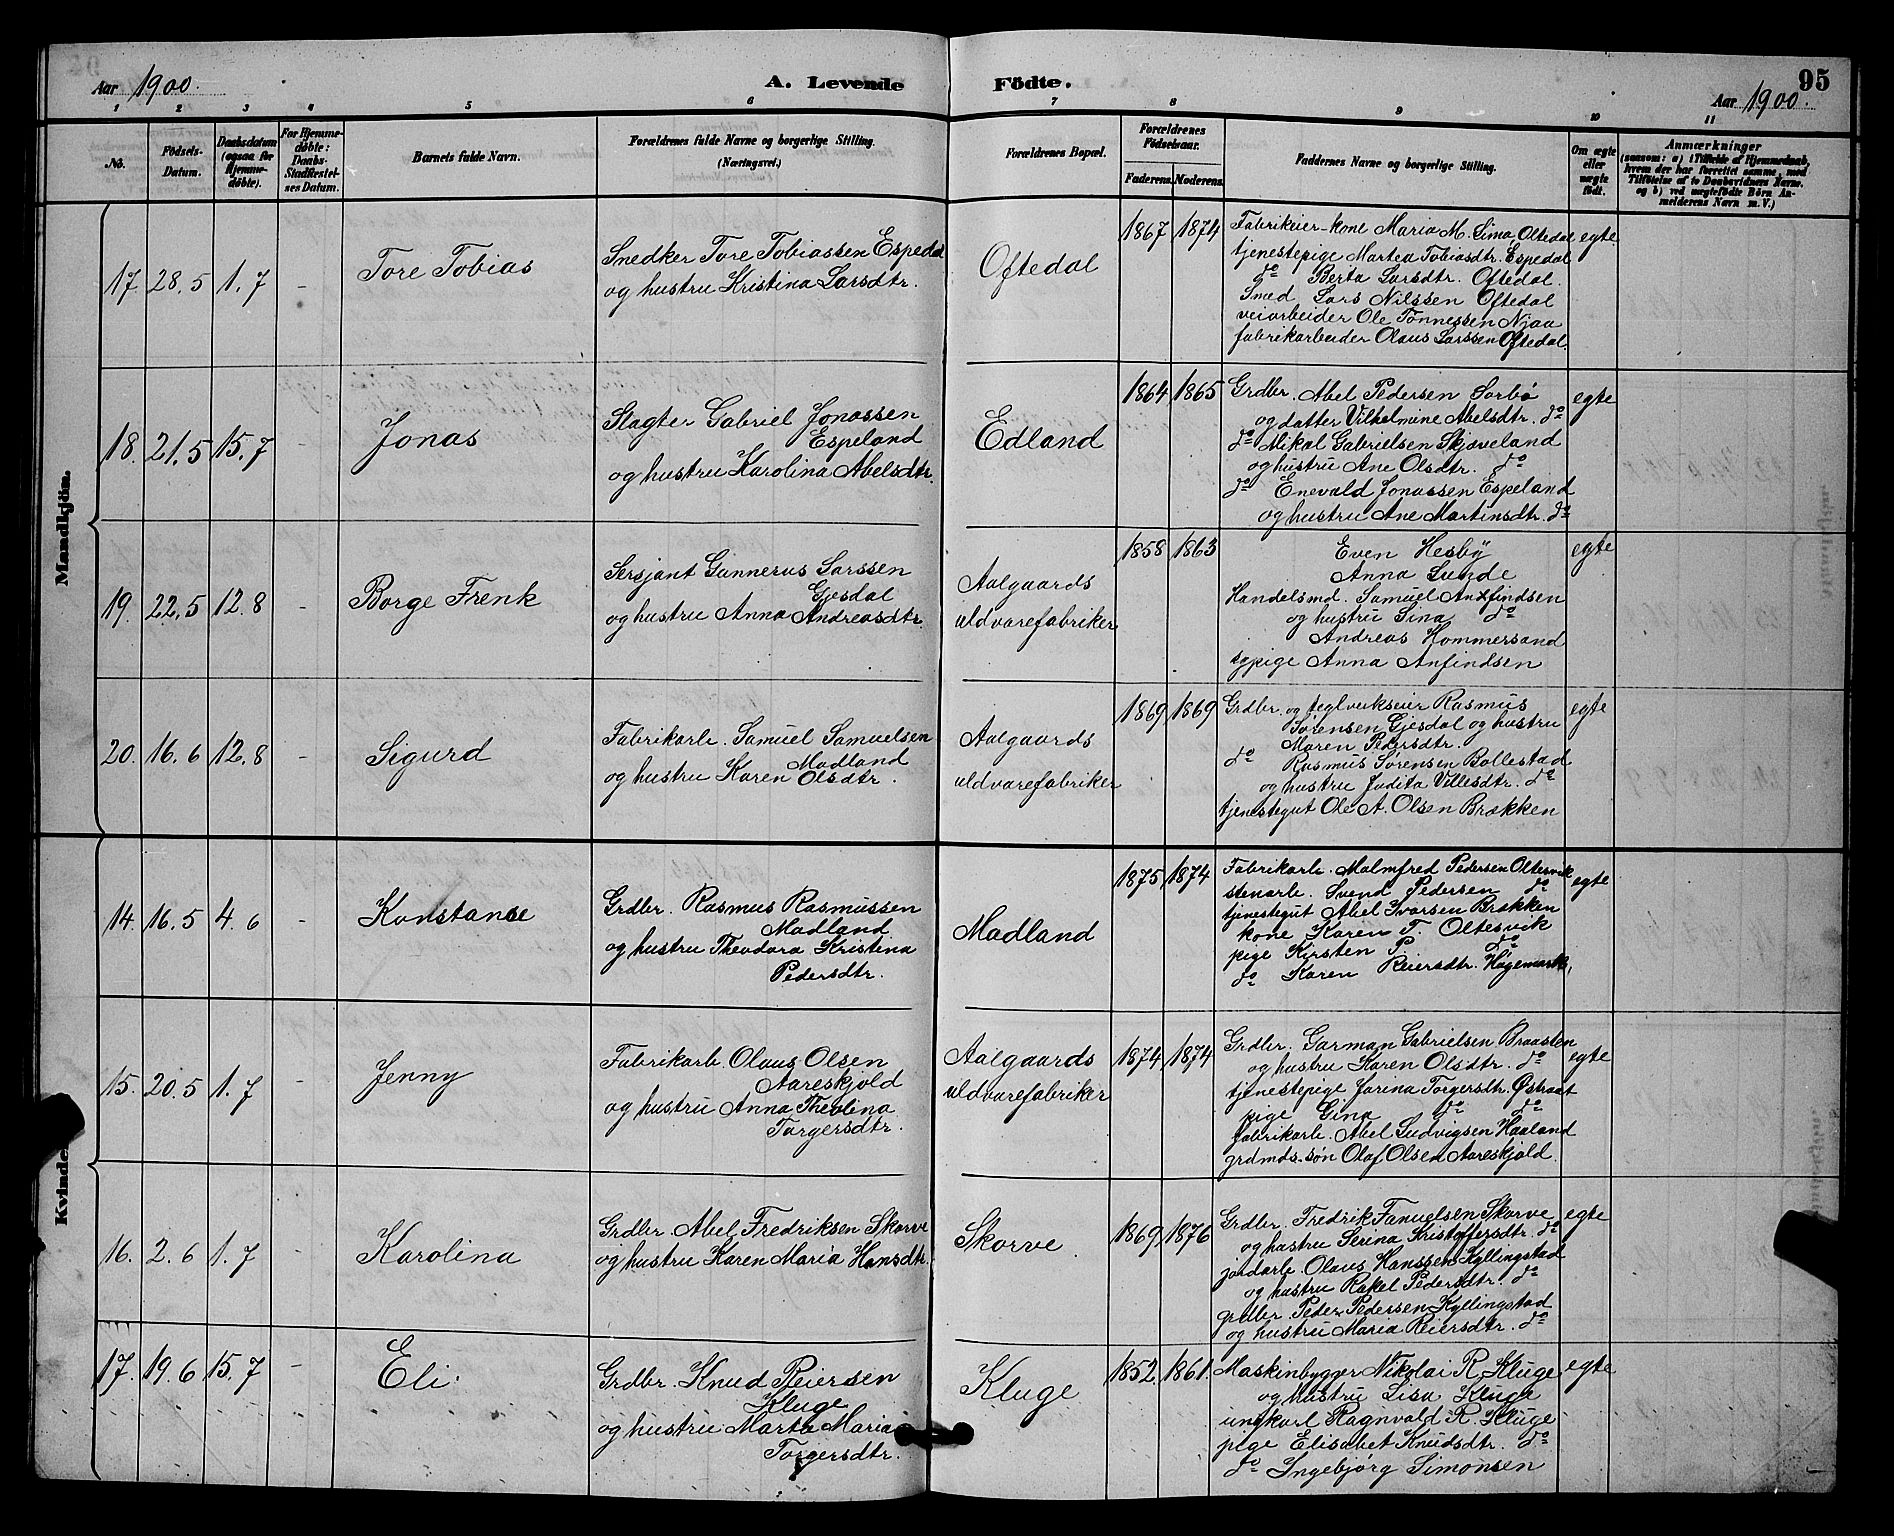 Aar 1900. A. Levende Födte. Aar 1900. 95
1 2 3 4 5 6 7 8 9 10 11
No.
Födsels-
Datum.
Daabsdatum
(ogsaa for
Hjemme-
døbte).
For Hjemme-
døbte:
Daabs-
Stadfæstel-
ses Datum.
Barnets fulde Navn.
Forældrenes fulde Navne og borgerlige Stilling.
(Næringsvei.)
Forældrenes Bopæl.
Forældrenes
Födselsaar.
Faderens. Moderens.
Faddernes Navne og borgerlige Stilling.
Om ægte
eller
uægte
födt.
Anmærkninger
(saasom: a) i Tilfælde af Hjemmedaab,
hvem der har forrettet samme, med
Tilföielse af to Daabsvidners Navne,
og b) ved uægtefödte Börn An-
melderens Navn m. V.)
Mandkjön.
17. 28.5 1.7 - Tore Tobias
Snedker Tore Tobiassen Espedal
og hustru Kristina Larsdtr.
Oftedal
1867 1874
Fabrikeier-kone Maria M. Lima Oftedal
tjenestepige Martea Tobiasdtr. Espedal
do Berta Larsdtr. Oftedal.
Smed Lars Nilssen Oftedal
veiarbeider Ole Tønnessen Njaa
fabrikarbeider Olaus Larssen Oftedal.
egte
18. 21.5 15.7 - Jonas
Slagter Gabriel Jonassen
Espeland
og hustru Karolina Abelsdtr.
Edland
1864 1865
Grdbr. Abel Pedersen Sorbø
og datter Vilhelmine Abelsdtr. do
do Mikal Gabrielsen Skjæveland
og hustru Ane Olsdtr. do
do Enevald Jonassen Espeland
og hustru Ane Martinsdtr. do
egte
19. 22.5 12.8 - Borge Frenk
Sersjant Gunnerus Larssen
Gjesdal
og hustru Anna Andreasdtr.
Aalgaards
uldvarefabriker
1858 1863
Even Hesby
Anna Lunde
Handelsmd. Samuel Anfindsen
og hustru Sina do
Andreas Hommersand
sypige Anna Anfindsen
egte
20. 16.6 12.8 - Sigurd
Fabrikarb. Samuel Samuelsen
Madland
og hustru Karen Olsdtr.
Aalgaards
uldvarefabriker
1869 1869
Grdbr. og teglverkseier Rasmus
Sørensen Gjesdal og hustru
Maren Pedersdtr.
do Rasmus Sørensen Bollestad
og hustru Judita Villesdtr. do
tjenestegut Ole A. Olsen Brækken
egte
Kvinde
14. 16.5 4.6 - Konstanse
Grdbr. Rasmus Rasmussen
Madland
og hustru Theodora Kristina
Pedersdtr.
Madland
1875 1874
Fabrikarb. Malmfred Pedersen Oltesvik
stenarb. Svend Pedersen do
tjenestegut Abel Ivarsen Brækken
kone Karen T. Oltesvik
pige Kirsten P. do
do Karen Reiersdtr. Høgemark,
egte
15. 20.5 1.7 - Jenny
Fabrikarb Olaus Olsen
Aareskjold
og hustru Anna Theolina
Torgersdtr.
Aalgaards
uldvarefabriker
1874 1874
Grdbr. Garman Gabrielsen Braasten
og hustru Karen Olsdtr. do
tjenestepige Jarina Torgersdtr. Østraat
pige Gina do do
fabrikarb. Abel Ludvigsen Haaland
grdmds.søn Olaf Olsen Aareskjold.
egte
16. 2.6 1.7 - Karolina
Grdbr Abel Fredriksen Skorve
og hustru Karen Maria Hansdtr.
Skorve.
1869 1876
Grdbr. Fredrik Fanuelsen Skorve
og hustru Serina Kristoffersdtr. do
jordarb. Olaus Hanssen Kyllingstad
og hustru Rakel Pedersdtr. do
grdbr. Peder Pedersen Kyllingstad
og hustru Maria Reiersdtr. do
egte
17. 19.6 15.7 - Eli.
Grdbr. Knud Reiersen
Kluge
og hustru Marta Maria
Torgersdtr.
Kluge
1852 1861.
Maskinbygger Nikolai R. Kluge
og hustru Lisa Kluge
ungkarl Ragnvald R. Kluge
pige Elisabet Knudsdtr. do
do Ingebjørg Simonsen
egte